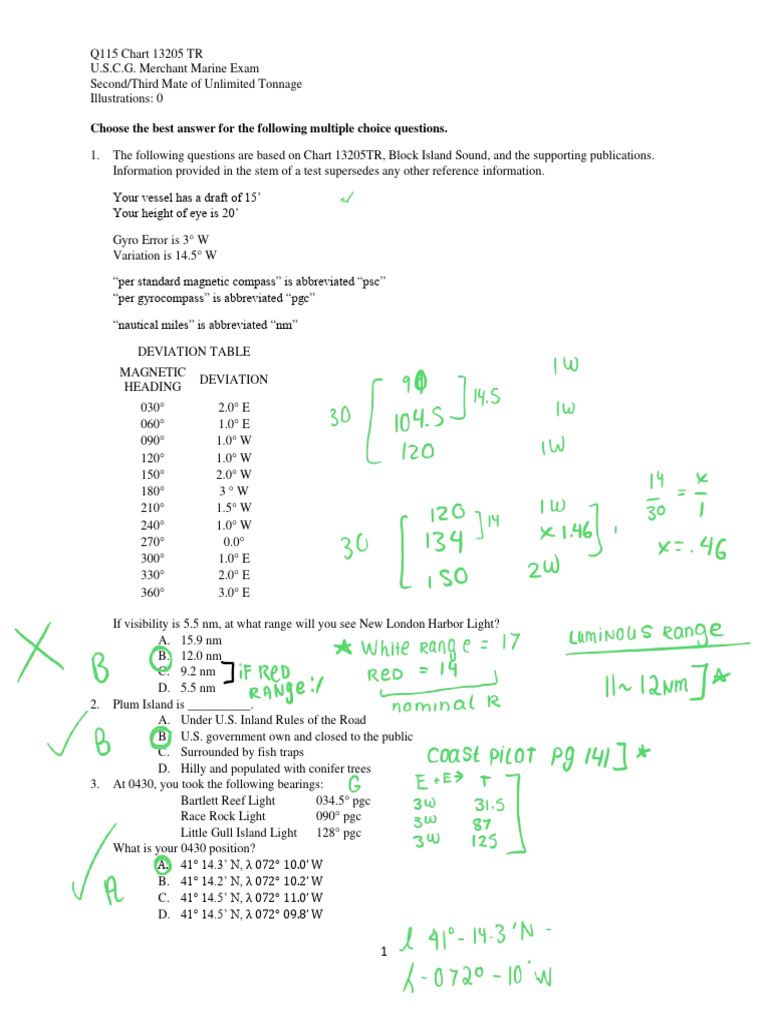 Q115 Chart 13205 TR
U.S.C.G. Merchant Marine Exam
Second/Third Mate of Unlimited Tonnage
Illustrations: 0
Choose the best answer for the following multiple choice questions.
1. The following questions are based on Chart 13205TR, Block Island Sound, and the supporting publications.
Information provided in the stem of a test supersedes any other reference information.
Your vessel has a draft of 15’
Your height of eye is 20’
Gyro Error is 3° W
Variation is 14.5° W
“per standard magnetic compass” is abbreviated “psc”
“per gyrocompass” is abbreviated “pgc”
“nautical miles” is abbreviated “nm”
DEVIATION TABLE
MAGNETIC HEADING DEVIATION
030° 2.0° E
060° 1.0° E
090° 1.0° W
120° 1.0° W
150° 2.0° W
180° 3 ° W
210° 1.5° W
240° 1.0° W
270° 0.0°
300° 1.0° E
330° 2.0° E
360° 3.0° E
90 1W
30 104.5 14.5 1W
120 1W
120 14 1W
30 134 x 1.46
150 2W
14/30 = x/1
x = .46
If visibility is 5.5 nm, at what range will you see New London Harbor Light?
A. 15.9 nm
B. 12.0 nm
C. 9.2 nm
D. 5.5 nm
B
IF RED
RANGE
White Range = 17
RED = 14
nominal R
Luminous Range
11~12NM
2. Plum Island is __________.
A. Under U.S. Inland Rules of the Road
B. U.S. government own and closed to the public
C. Surrounded by fish traps
D. Hilly and populated with conifer trees
B
Coast Pilot Pg 141
3. At 0430, you took the following bearings:
Bartlett Reef Light 034.5° pgc
Race Rock Light 090° pgc
Little Gull Island Light 128° pgc
G E +E→ T
3W 31.5
3W 87
3W 125
What is your 0430 position?
A. 41° 14.3’ N, λ 072° 10.0’ W
B. 41° 14.2’ N, λ 072° 10.2’ W
C. 41° 14.5’ N, λ 072° 11.0’ W
D. 41° 14.5’ N, λ 072° 09.8’ W
A
l 41°-14.3'N -
λ-072°-10'W
1